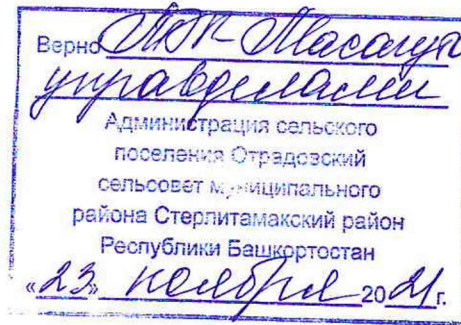 Верно
управделами
Администрация сельского
поселения Отрадовский
сельсовет муниципального
района Стерлитамакский район
Республики Башкортостан
«23» ноября 2021 г.